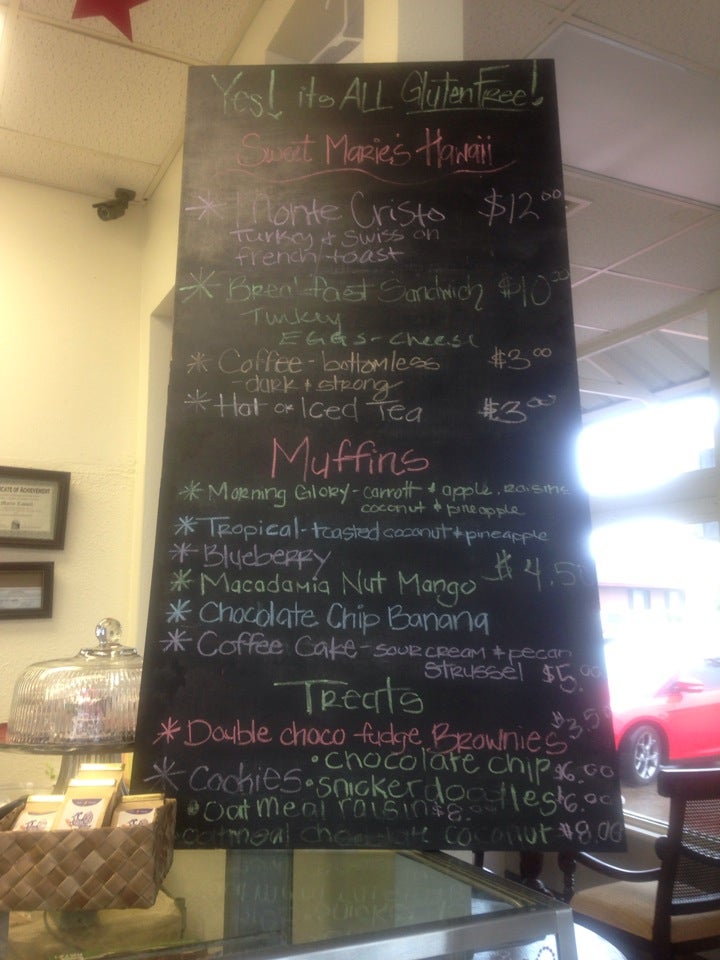 Yes! its ALL Gluten Free!
Sweet Marie's Hawaii
* Monte Cristo $12.00
Turkey + Swiss on
french toast
* Breakfast Sandwich $10.00
Turkey
EGGS - cheese
* Coffee - bottomless $3.00
- dark + strong
* Hot or Iced Tea $3.00
Muffins
* Morning Glory - carrott + apple, raisins
coconut + pineapple
* Tropical - toasted coconut + pineapple
* Blueberry
$4.50
* Macadamia Nut Mango
* Chocolate Chip Banana
* Coffee Cake - sour cream + pecan
strussel $5.00
Treats
* Double choco fudge Brownies $3.50
• chocolate chip $6.00
* Cookies • snickerdoodles $6.00
• oatmeal raisin $8.
oatmeal chocolate coconut $8.00